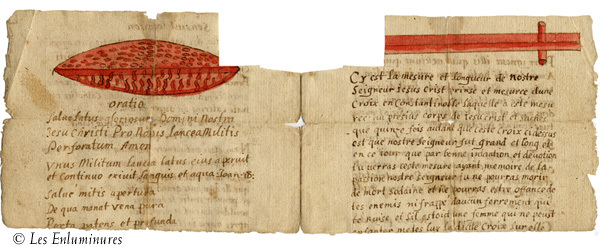 oratio
Salue Latus gloriosum Domini Nostri
Jesu Christi Pro Nobis Lancea Militis
Perforatum Amen
Vnus Militum lancea latus eius aperuit
et continuo exiuit sanguis et aqua Ioan
Salue mitis apertura
De qua manat vena pura
Porta patens et profunda
Cy est La mesure et Longueur de nostre
Seigneur Jesus Crist prinse et mesuree dune
Croix en constantinoble laquelle a este mesu
ree au pretius corps de Jesucrist et
que quinze fois autant que ceste croix cidessus
est que nostre Seigneur fut grand et Long et
en ce Jour que par bonne intention et devotion
tu verras ceste mesure ayant memoire de La
passion nostre Seigneur tu ne pourras morir
de mort Sodaine et ne pourras estre offance de
tes enemis ni frappe daucun ferrement qui
te nuise, et sil astoid une femme qui ne peut
enfanter metes Lui La dicte Croix sur elle
© Les Enluminures